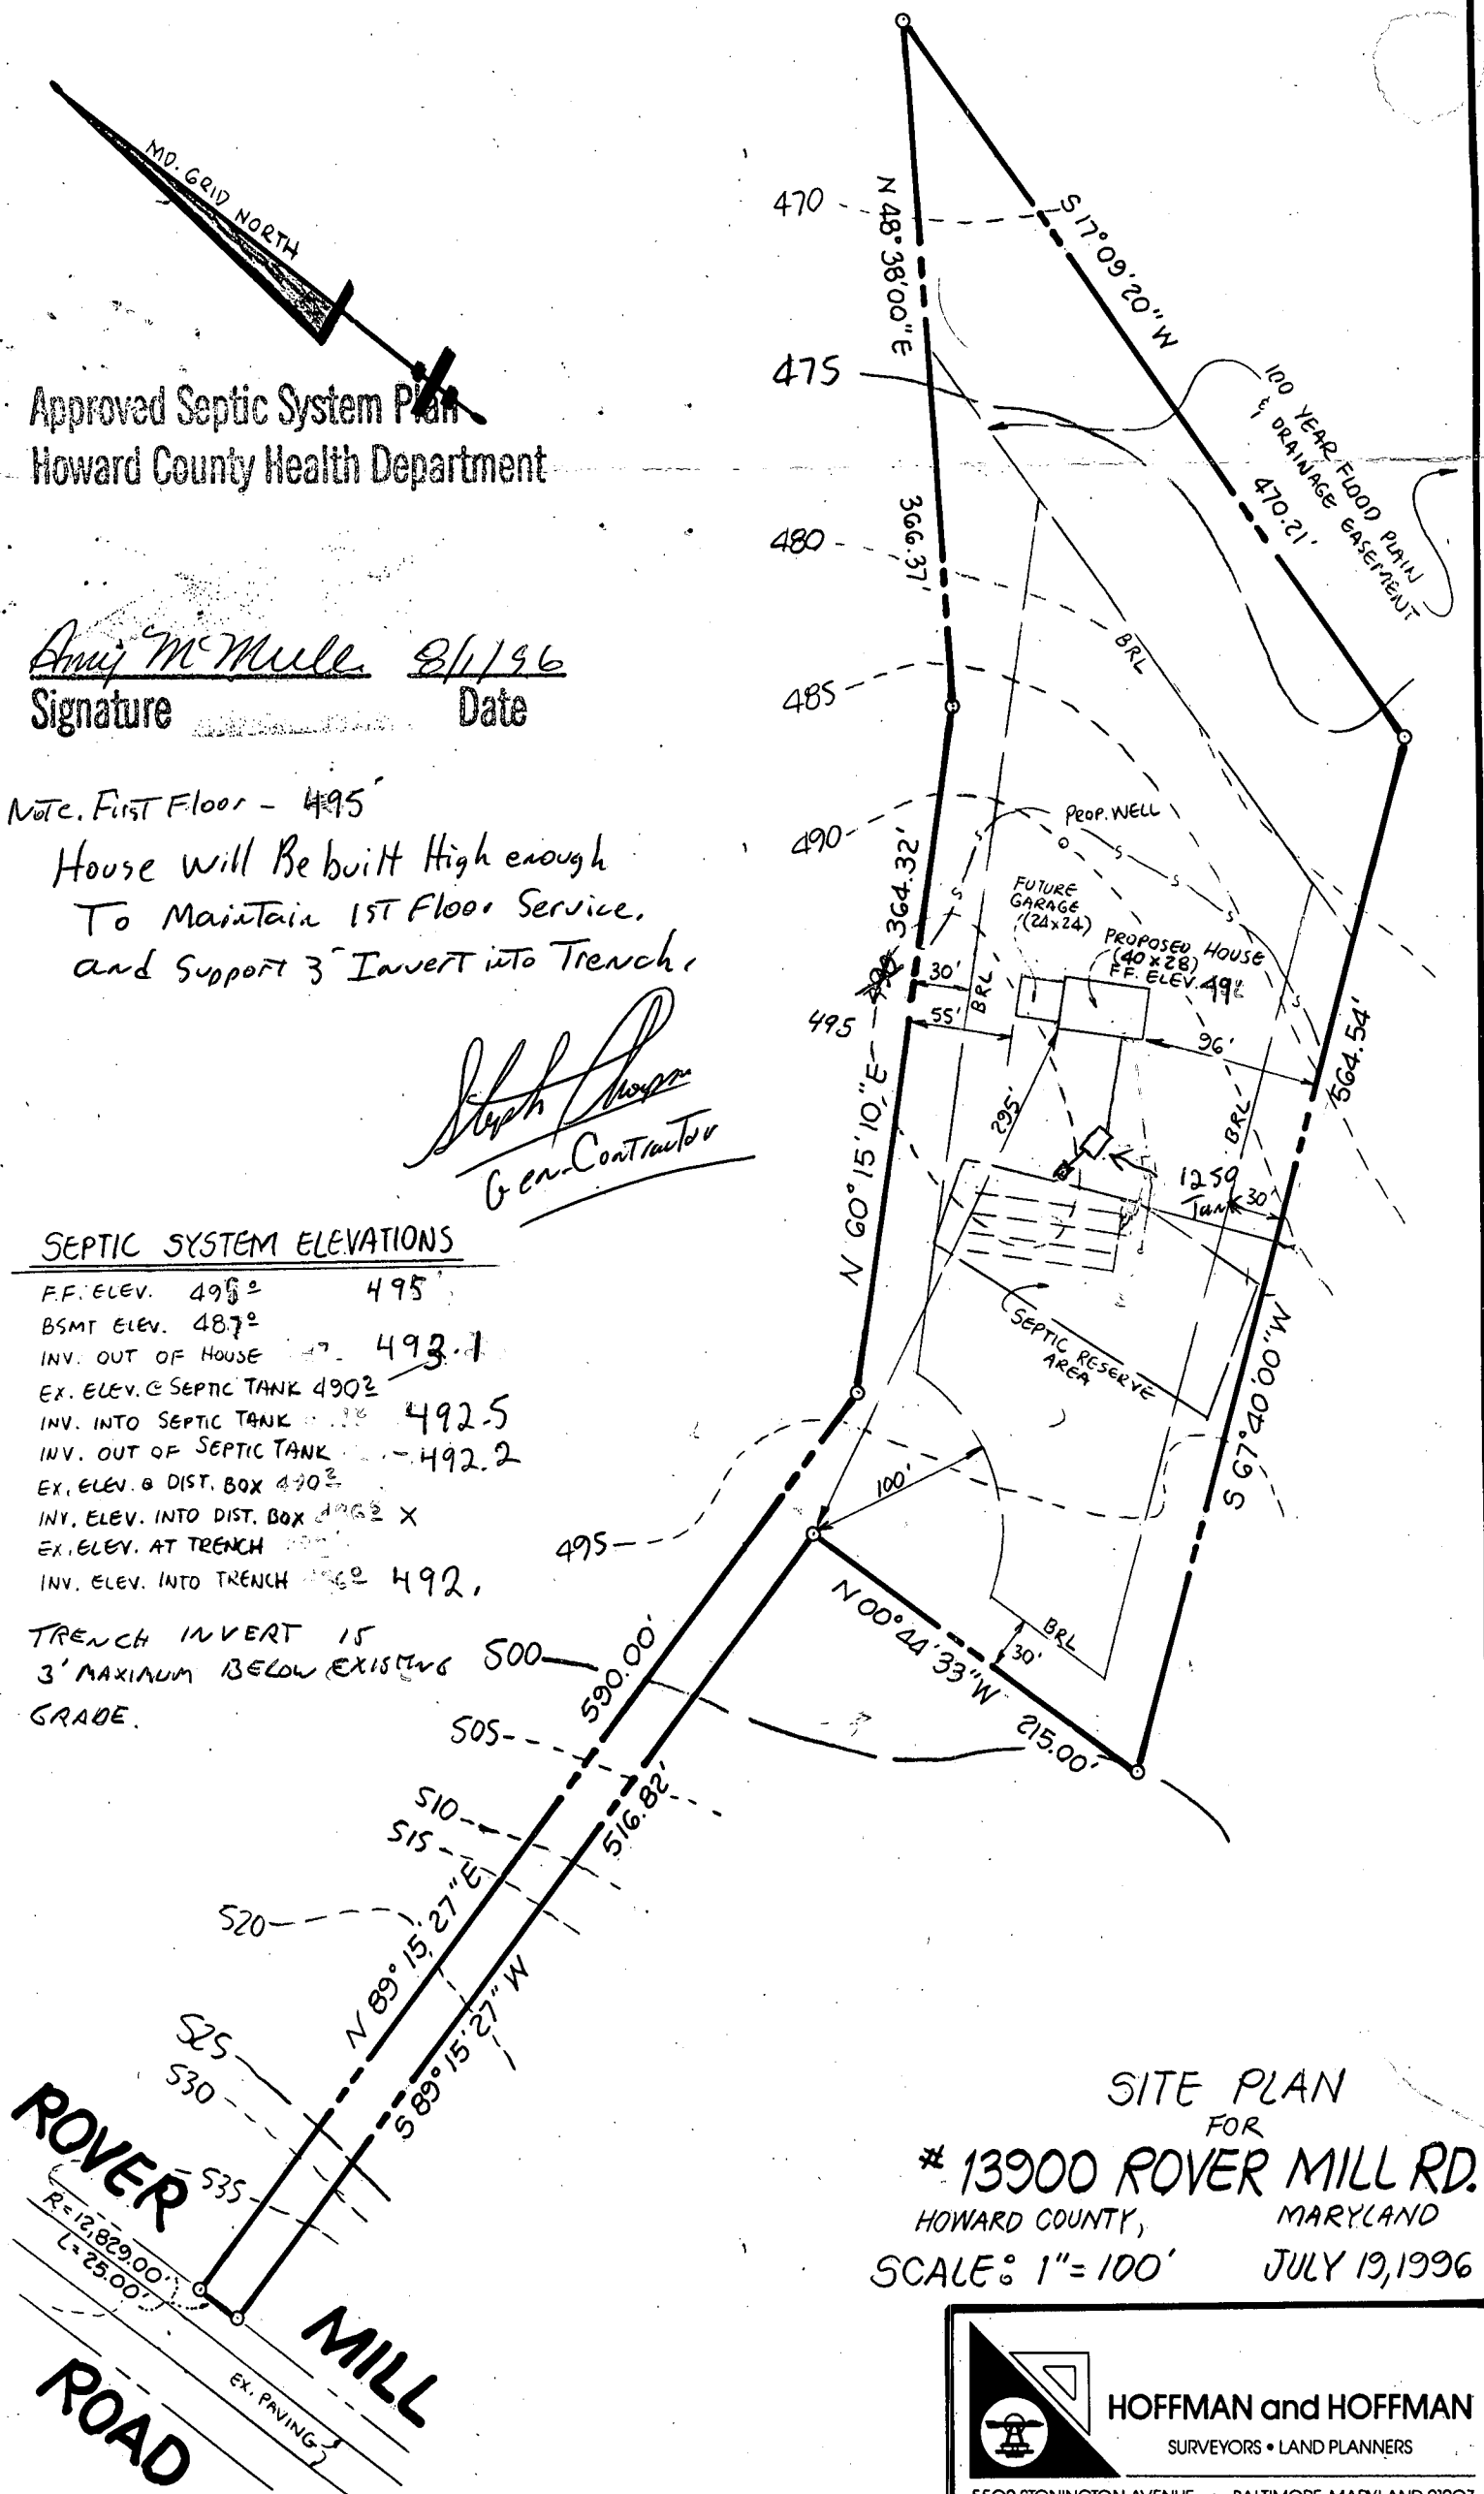 MD. GRID NORTH
Approved Septic System Plan
Howard County Health Department
Amy McMulle 8/1/96
Signature Date
Note. First Floor - 495'
House Will Be built High enough
To Maintain 1ST Floor Service.
and Support 3' Invert into Trench.
Gen-Contractor
SEPTIC SYSTEM ELEVATIONS
F.F. ELEV. 495'
BSMT ELEV.
INV. OUT OF HOUSE 493.1
EX. ELEV. @ SEPTIC TANK
INV. INTO SEPTIC TANK 492.5
INV. OUT OF SEPTIC TANK 492.2
EX. ELEV. @ DIST. BOX
INV. ELEV. INTO DIST. BOX X
EX. ELEV. AT TRENCH
INV. ELEV. INTO TRENCH 492.
TRENCH INVERT IS
3' MAXIMUM BELOW EXISTING
GRADE.
470
475
480
485
490
495
495
500
505
510
515
520
525
530
535
N 48°38'00" E
366.37'
S 17°09'20" W
470.21'
100 YEAR FLOOD PLAIN
& DRAINAGE EASEMENT
BRL
PROP. WELL
S
S
S
S
S
S
S
FUTURE
GARAGE
(24x24)
PROPOSED HOUSE
(40x28)
FF. ELEV.
364.32'
30'
55'
BRL
96'
295'
BRL
564.54'
N 60°15'10" E
1250
Tank
30'
SEPTIC RESERVE
AREA
S 67°40'00" W
100'
N 00°44'33" W
215.00'
BRL
30'
590.00'
516.82'
N 89°15'27" E
S 89°15'27" W
ROVER
MILL
ROAD
R=12,829.00'
L=25.00'
EX. PAVING
SITE PLAN
FOR
# 13900 ROVER MILL RD.
HOWARD COUNTY, MARYLAND
SCALE: 1"=100' JULY 19, 1996
HOFFMAN and HOFFMAN
SURVEYORS • LAND PLANNERS